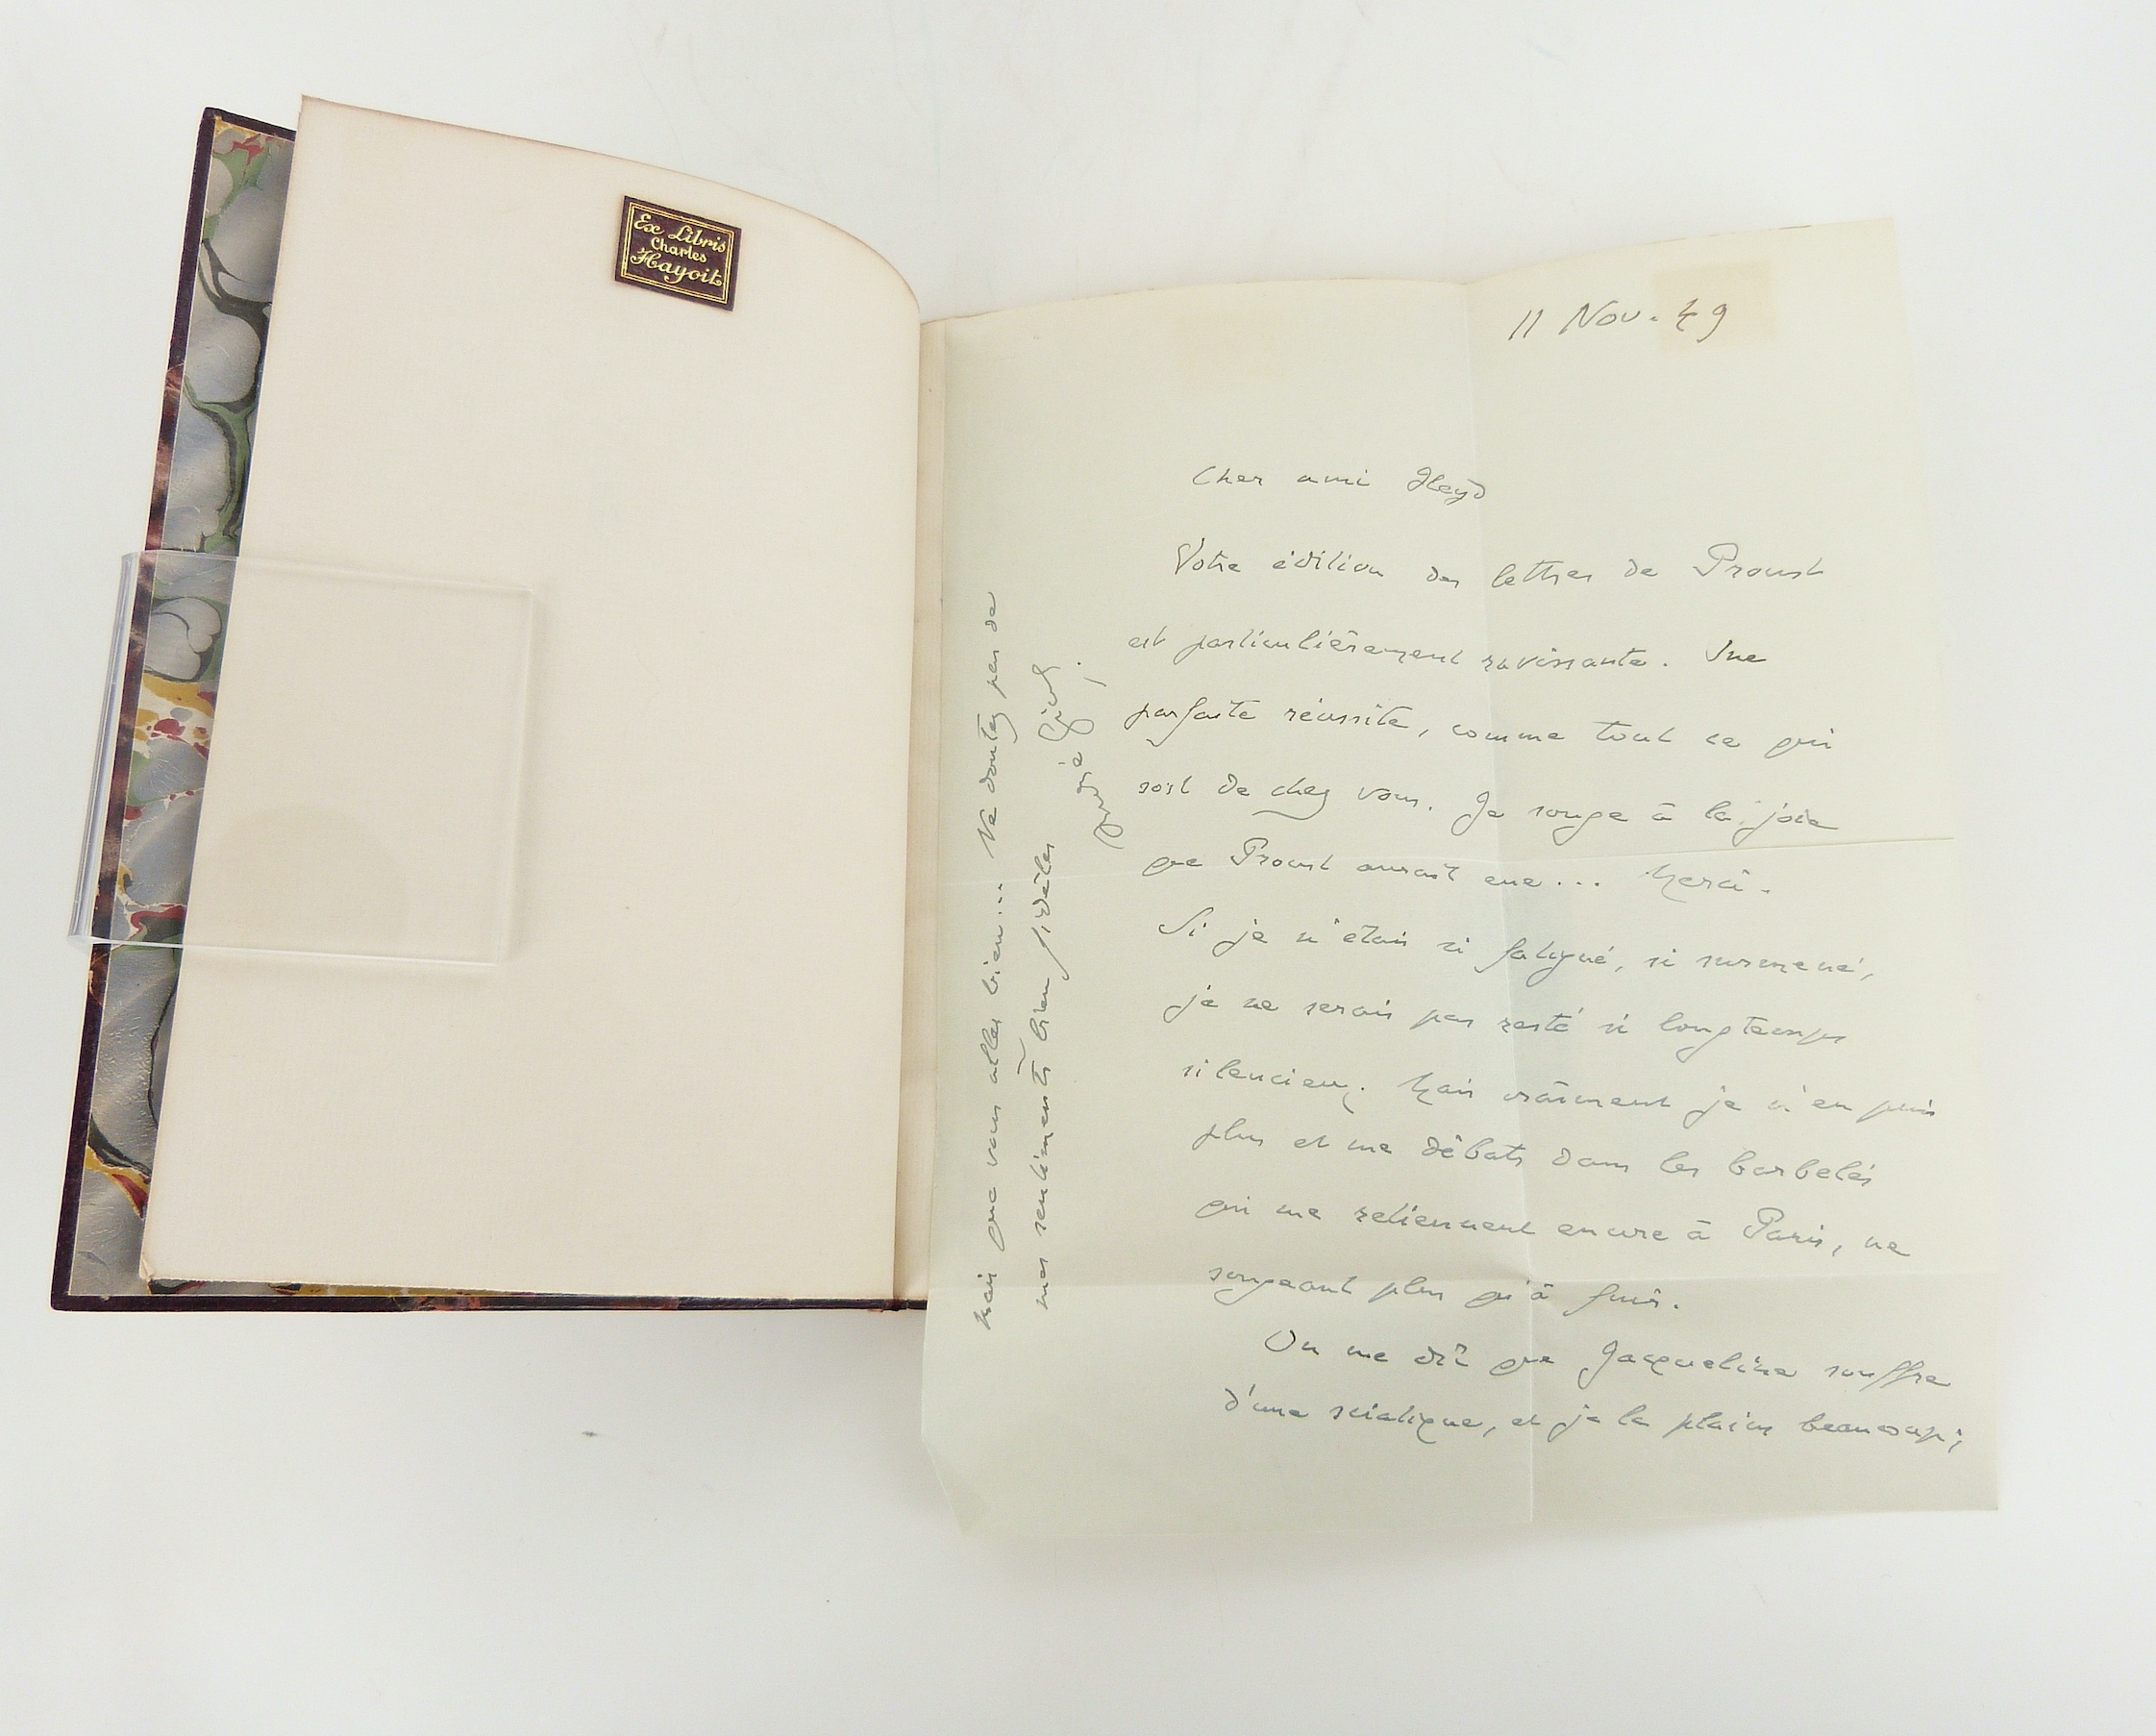 Ex Libris
Charles
Hayoit
11 Nov. 49
Cher ami Heyd
Votre édition des lettres de Proust
est particulièrement ravissante. Une
parfaite réussite, comme tout ce qui
sort de chez vous. Je songe à la joie
que Proust aurait eue... Merci.
Si je n'étais si fatigué, si surmené,
je ne serais pas resté si longtemps
silencieux. Mais vraiment je n'en puis
plus et me débats dans les barbelés
qui me retiennent encore à Paris, ne
songeant plus qu'à fuir.
On me dit que Jacqueline souffre
d'une sciatique, et je la plains beaucoup;
mais que vous allez bien... Ne doutez pas de
mes sentiments bien fidèles
André Gide.